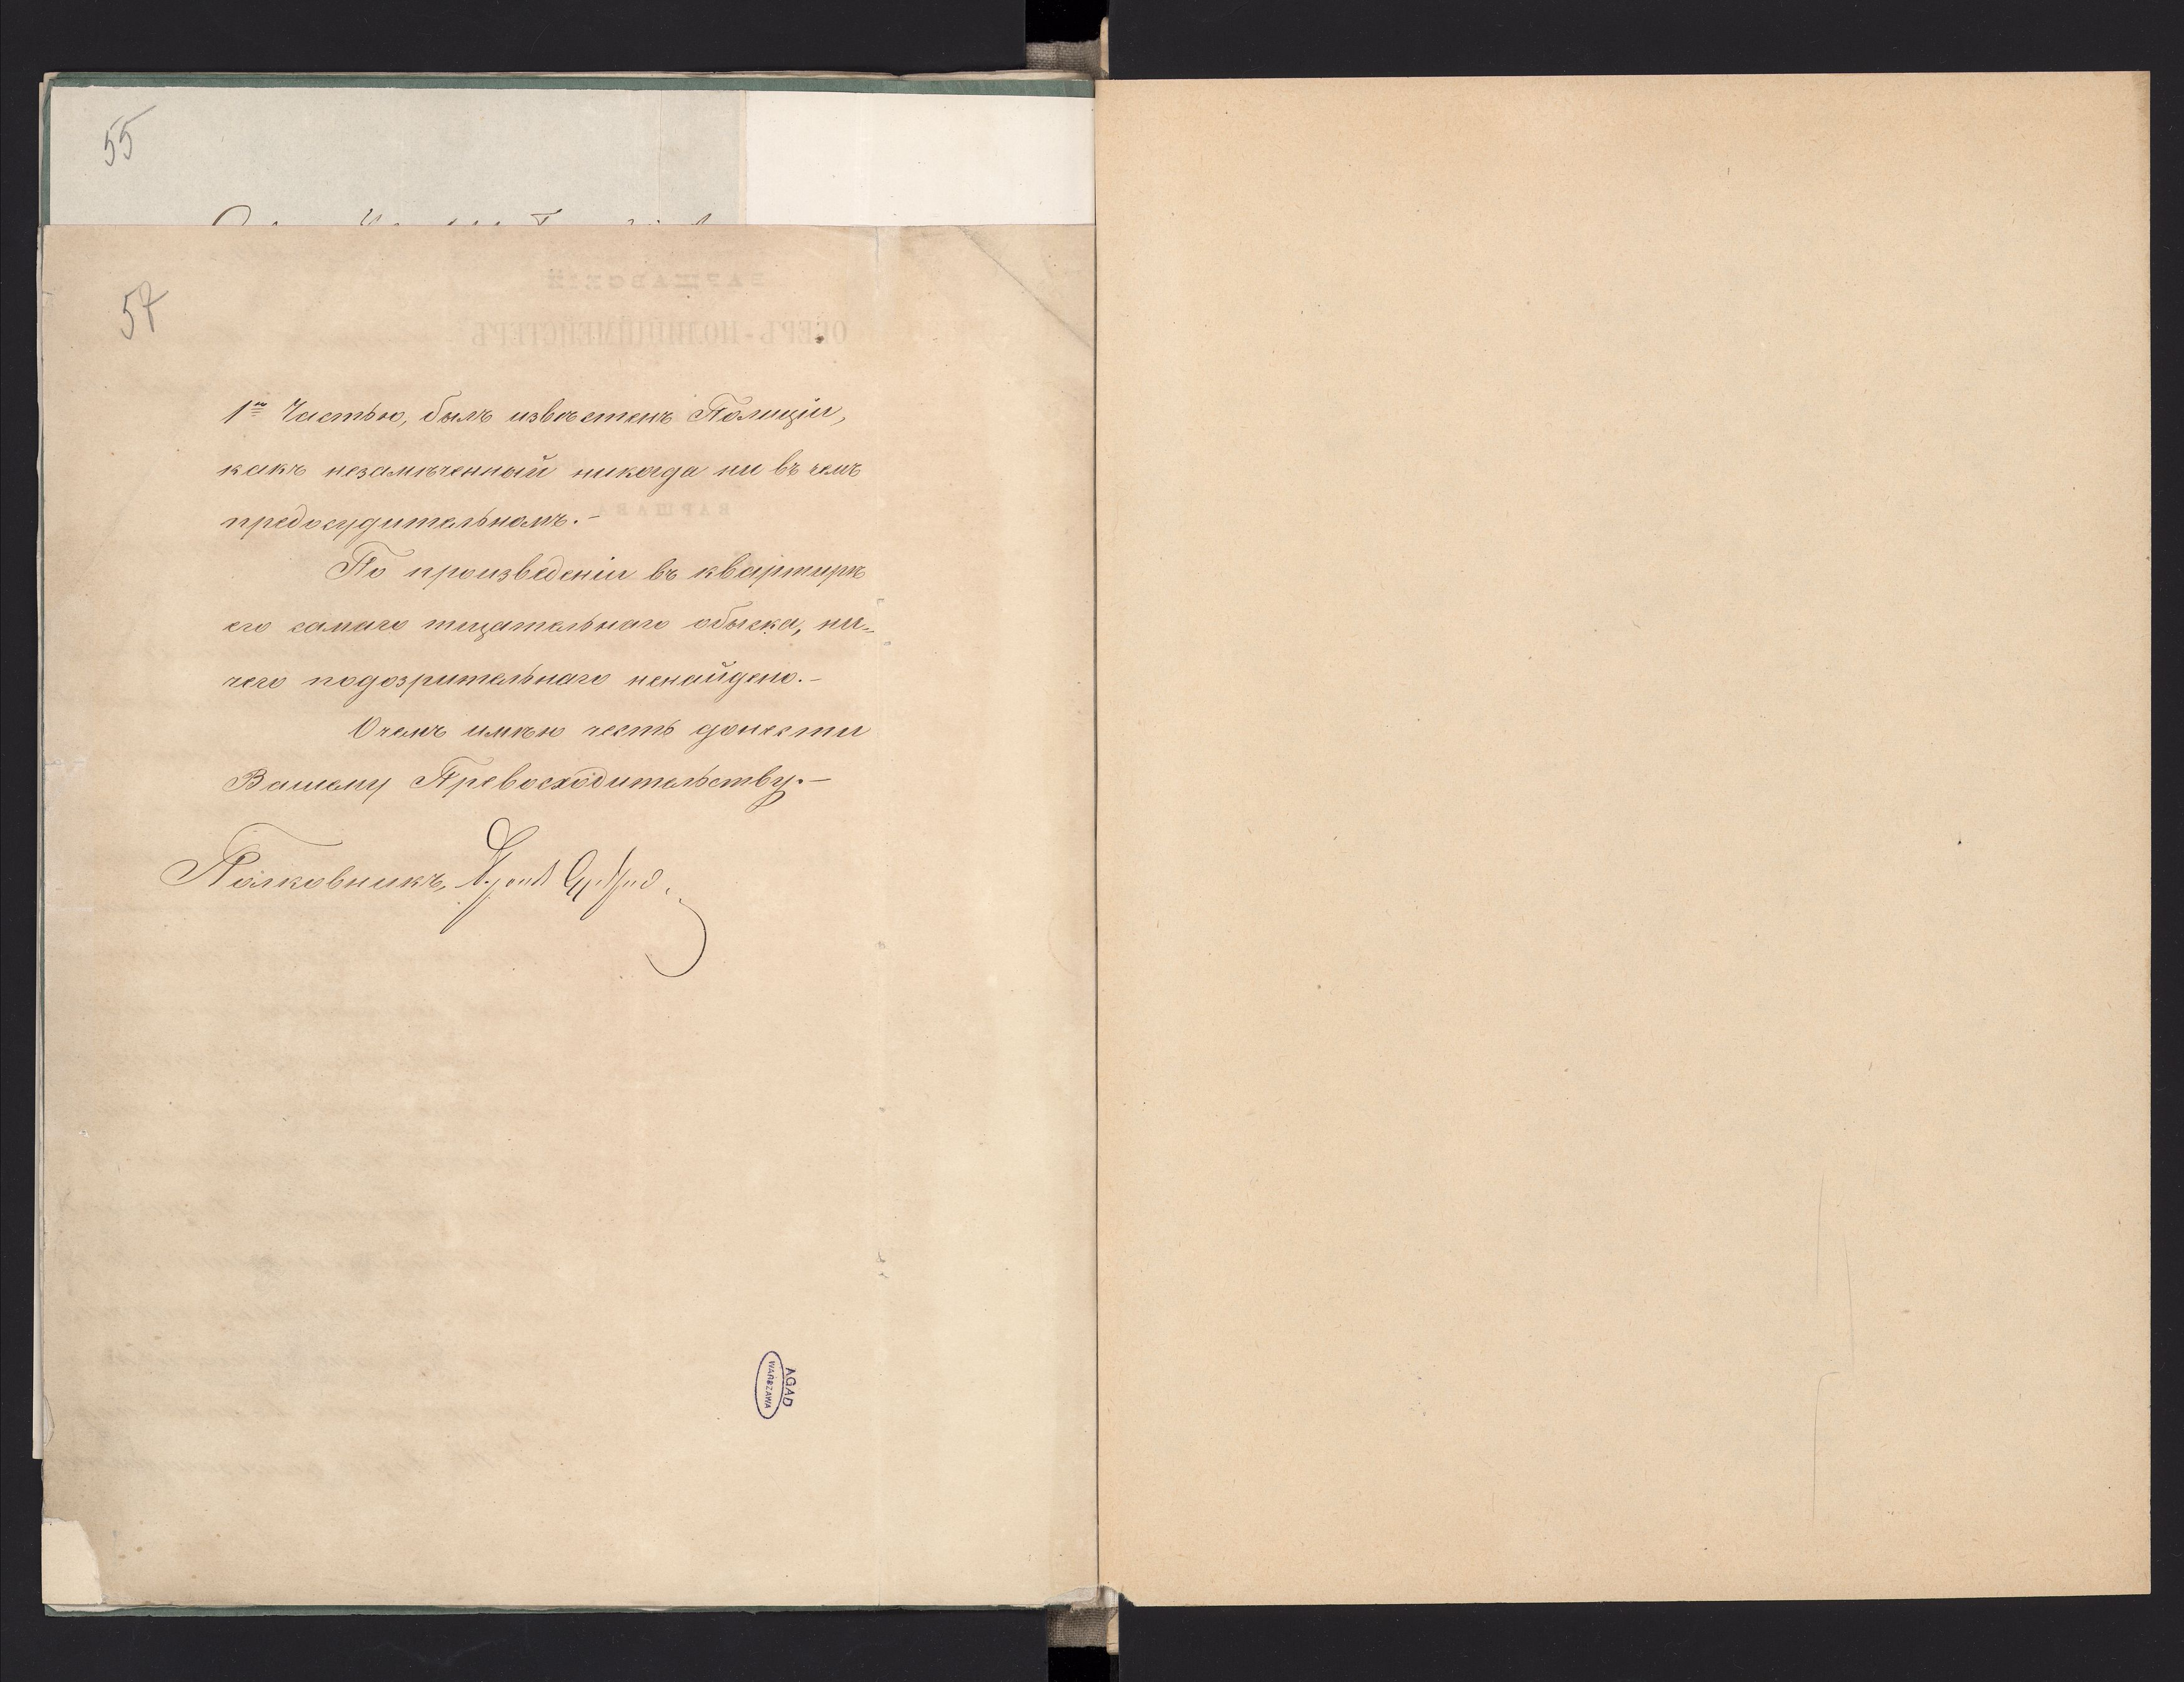 55
57
1ю Частью, былъ извѣстенъ Полиціи,
какъ незамѣченный никогда ни въ чемъ
предосудительномъ.-
По произведеніи въ квартирѣ
его самаго тщательнаго обыска, ни=
чего подозрительнаго ненайдено.-
Очемъ имѣю честь донести
Вашему Превосходительству.-
Полковникъ,
AGAD
WARSZAWA